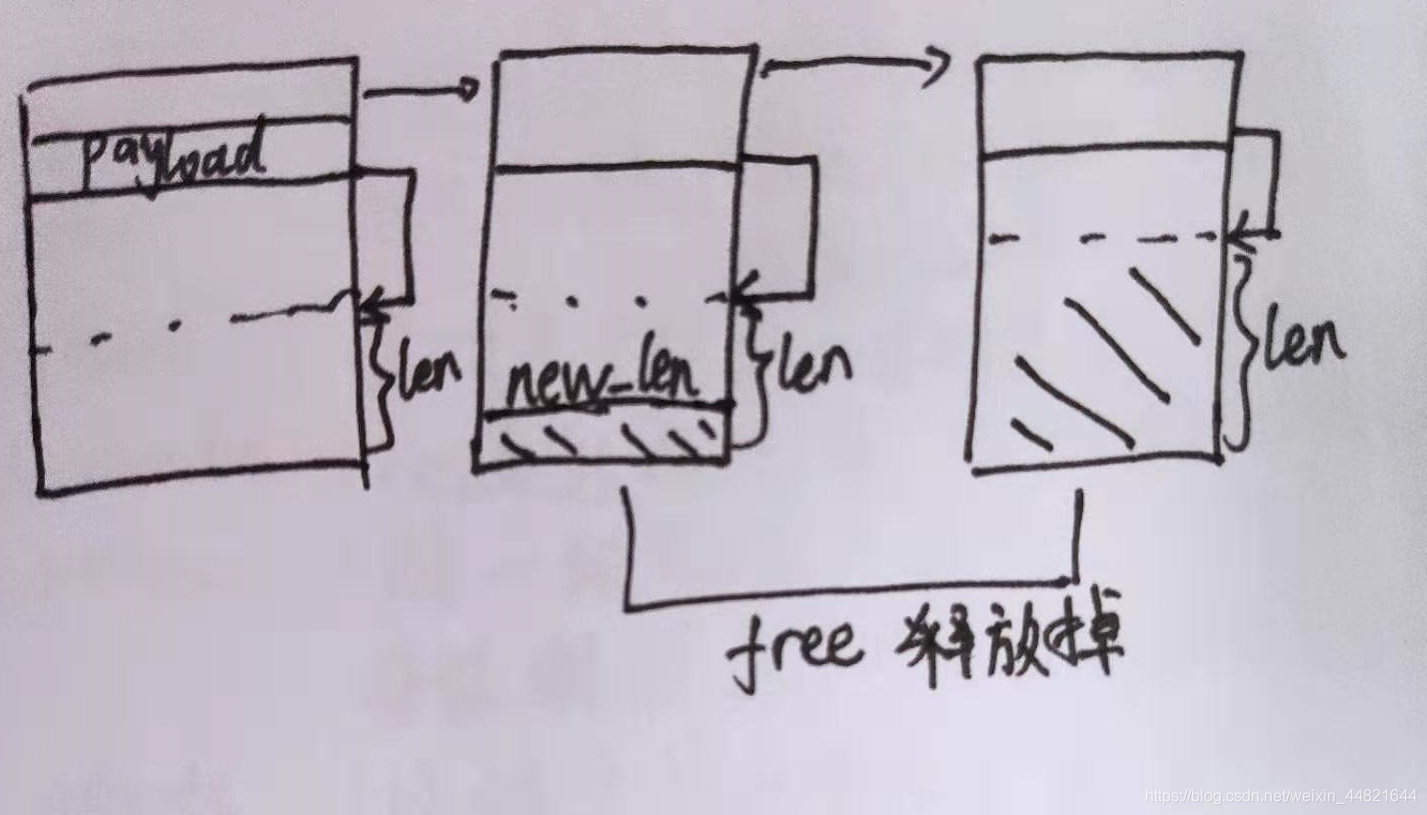 payload
len
new_len
len
len
free 释放掉
https://blog.csdn.net/weixin_44821644